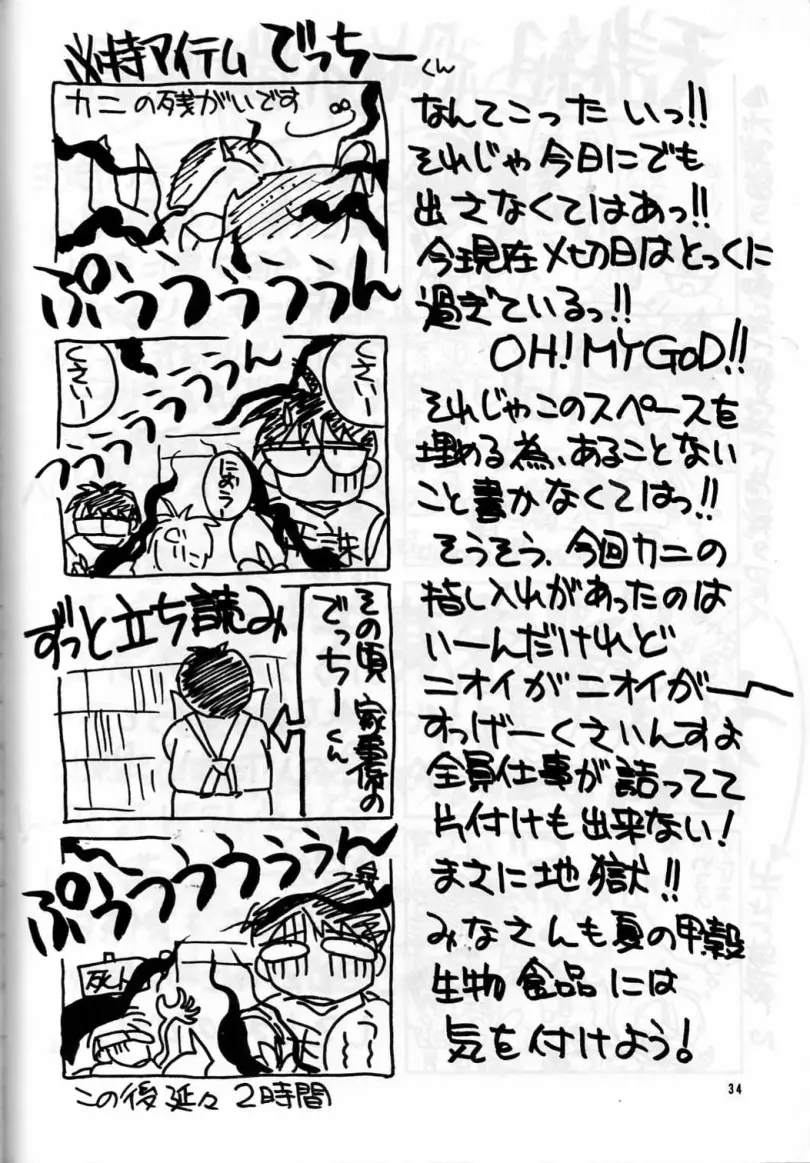 必持アイテム でっちーくん
カニの残がいです
ぷぅぅぅぅぅん
くさいー
くさいー
ぅぅぅぅぅぅん
におうー
誅
その頃 家事係の
でっちーくん
ずっと立ち読み
ぷぅぅぅぅぅぅん
死人
この後延々2時間
なんてこった いっ!!
それじゃ今日にでも
出さなくてはあっ!!
今現在〆切日はとっくに
過ぎているっ!!
OH! MY GOD!!
それじゃこのスペースを
埋める為、あることない
こと書かなくてはっ!!
そうそう、今回カニの
指し入れがあったのは
いーんだけれど
ニオイがニオイがー
すっげーくさいんすよ
全員仕事が詰ってて
片付けも出来ない!
まさに地獄!!
みなさんも夏の甲殻
生物食品には
気を付けよう!
34